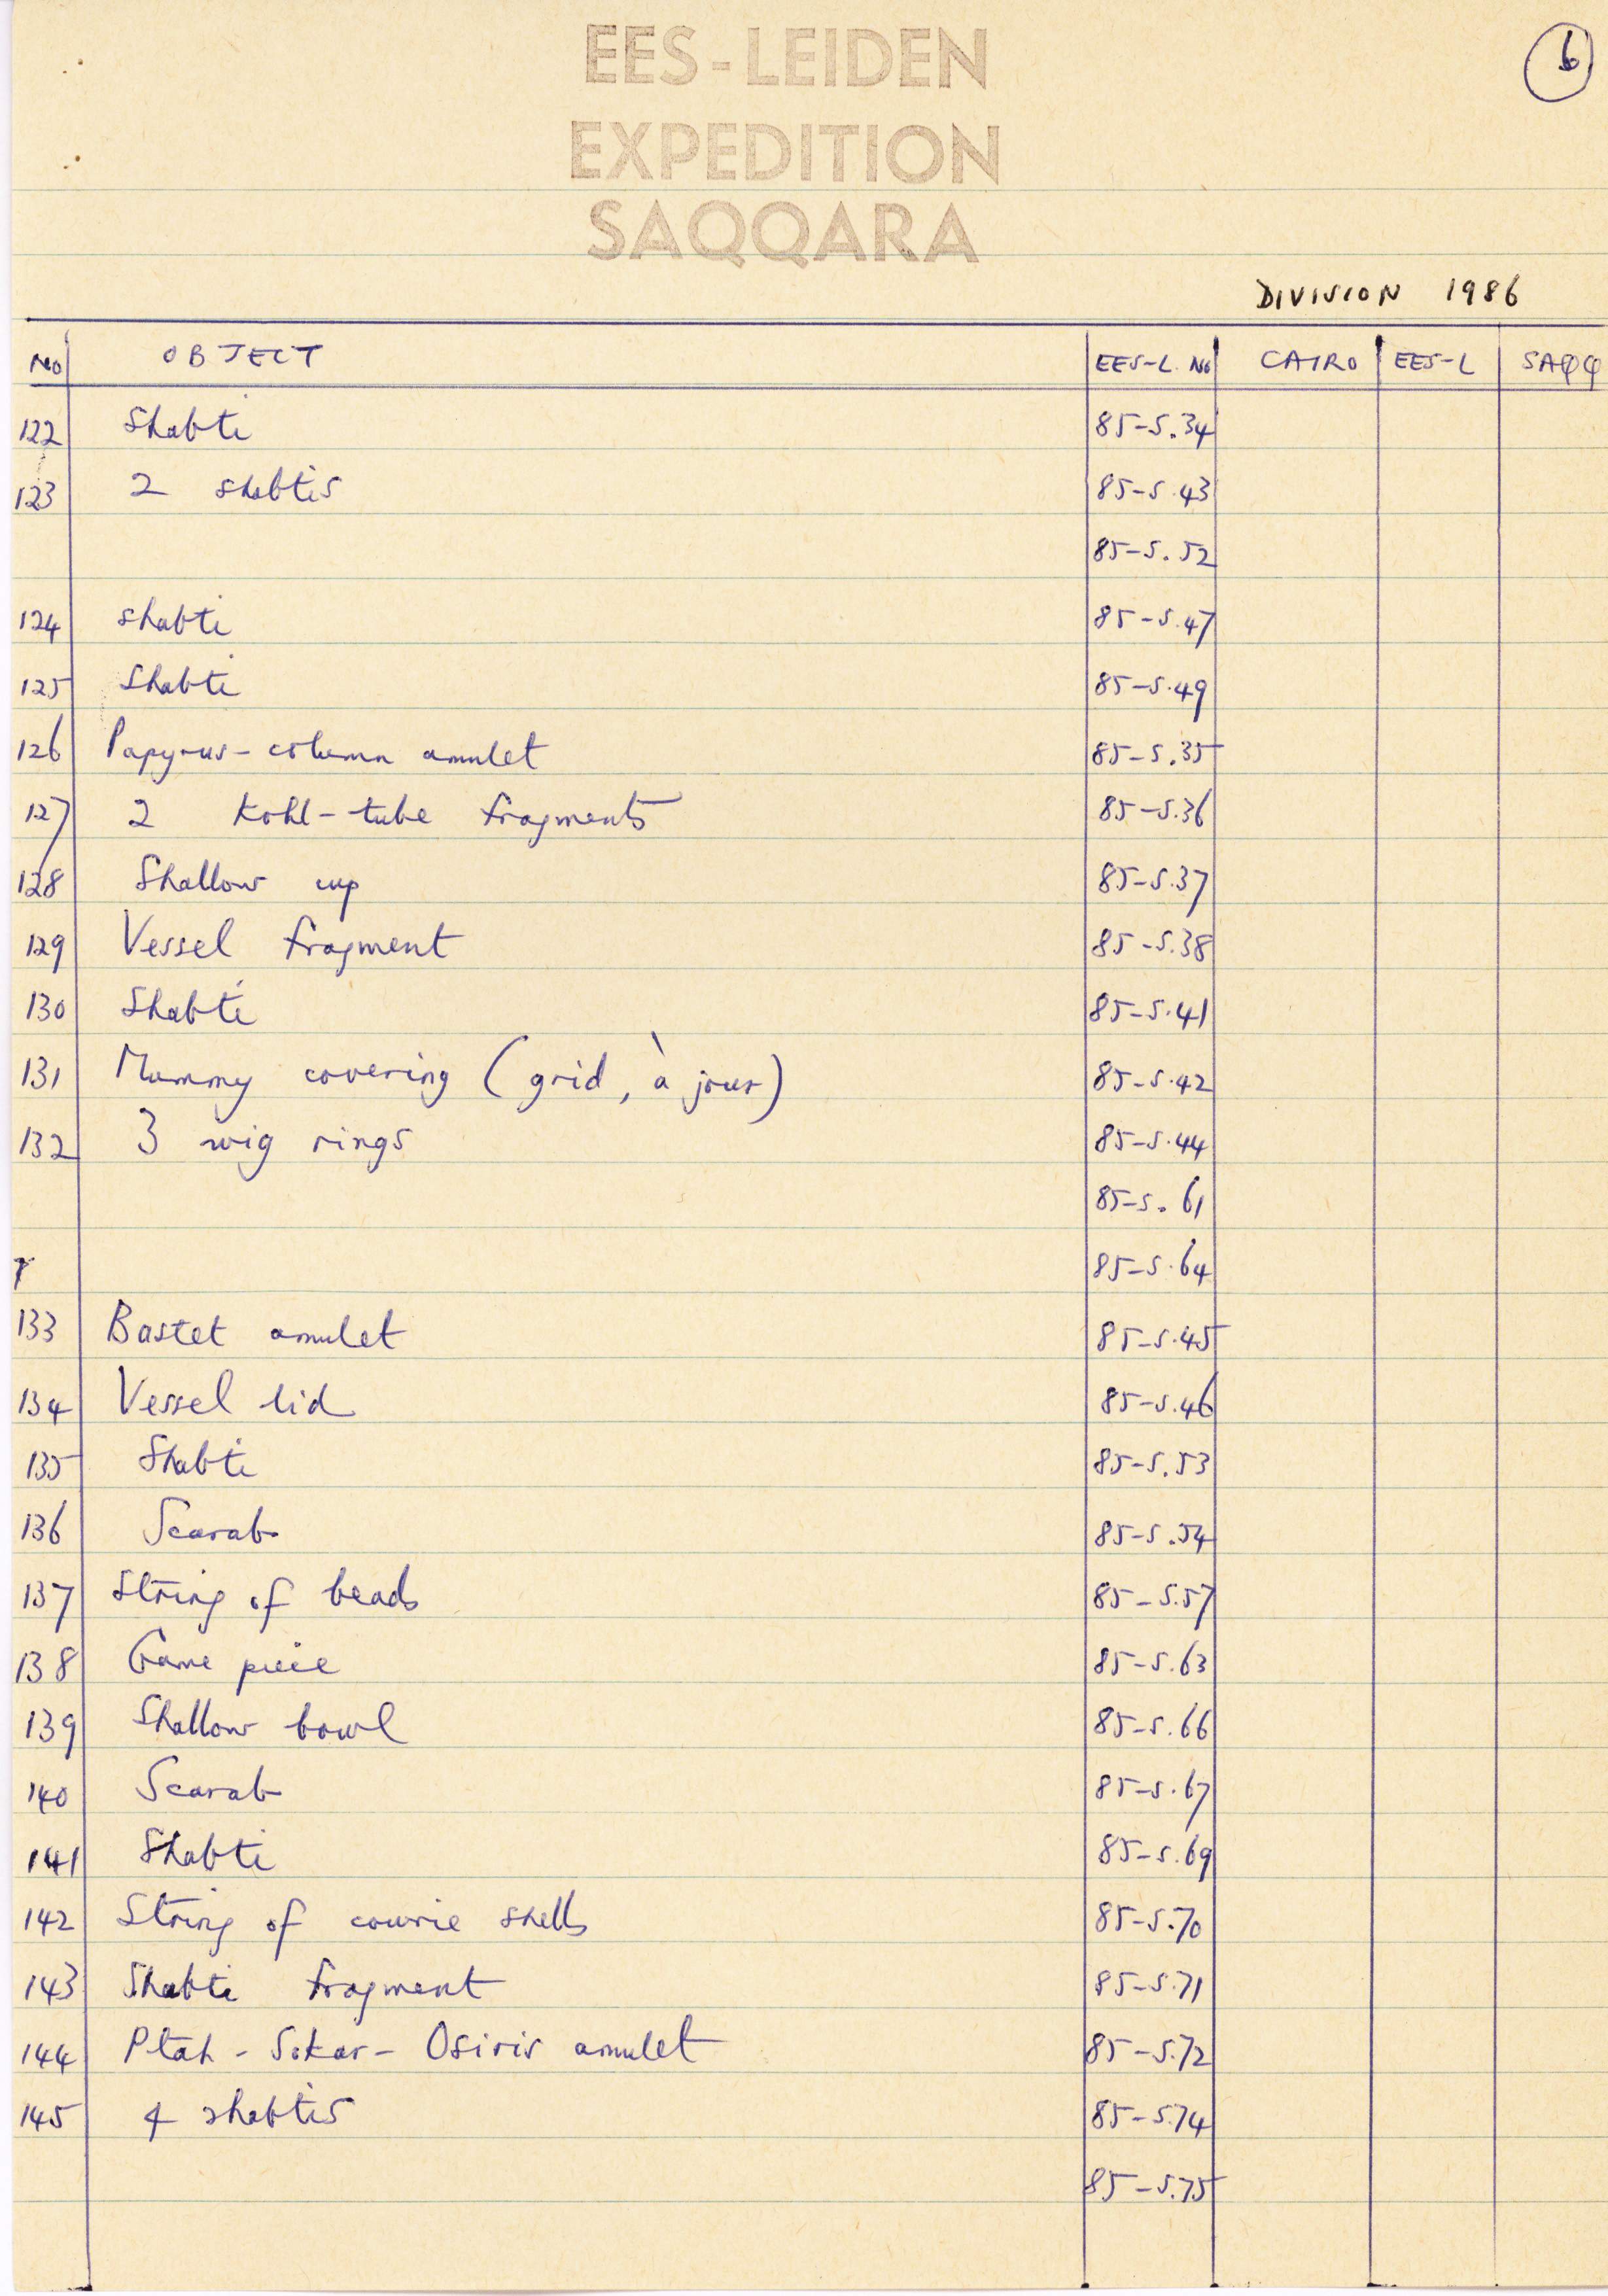 EES-LEIDEN
EXPEDITION
SAQQARA
6
DIVISION 1986
No OBJECT EES-L. No CAIRO EES-L SAQQ
122 Shabti 85-S.34
123 2 shabtis 85-S.43
85-S.52
124 shabti 85-S.47
125 Shabti 85-S.49
126 Papyrus-column amulet 85-S.35
127 2 Kohl-tube fragments 85-S.36
128 Shallow cup 85-S.37
129 Vessel fragment 85-S.38
130 Shabti 85-S.41
131 Mummy covering (grid, à jour) 85-S.42
132 3 wig rings 85-S.44
85-S.61
85-S.64
133 Bastet amulet 85-S.45
134 Vessel lid 85-S.46
135 Shabti 85-S.53
136 Scarab 85-S.54
137 String of beads 85-S.57
138 Game piece 85-S.63
139 Shallow bowl 85-S.66
140 Scarab 85-S.67
141 Shabti 85-S.69
142 String of cowrie shells 85-S.70
143 Shabti fragment 85-S.71
144 Ptah-Sokar-Osiris amulet 85-S.72
145 4 shabtis 85-S.74
85-S.75